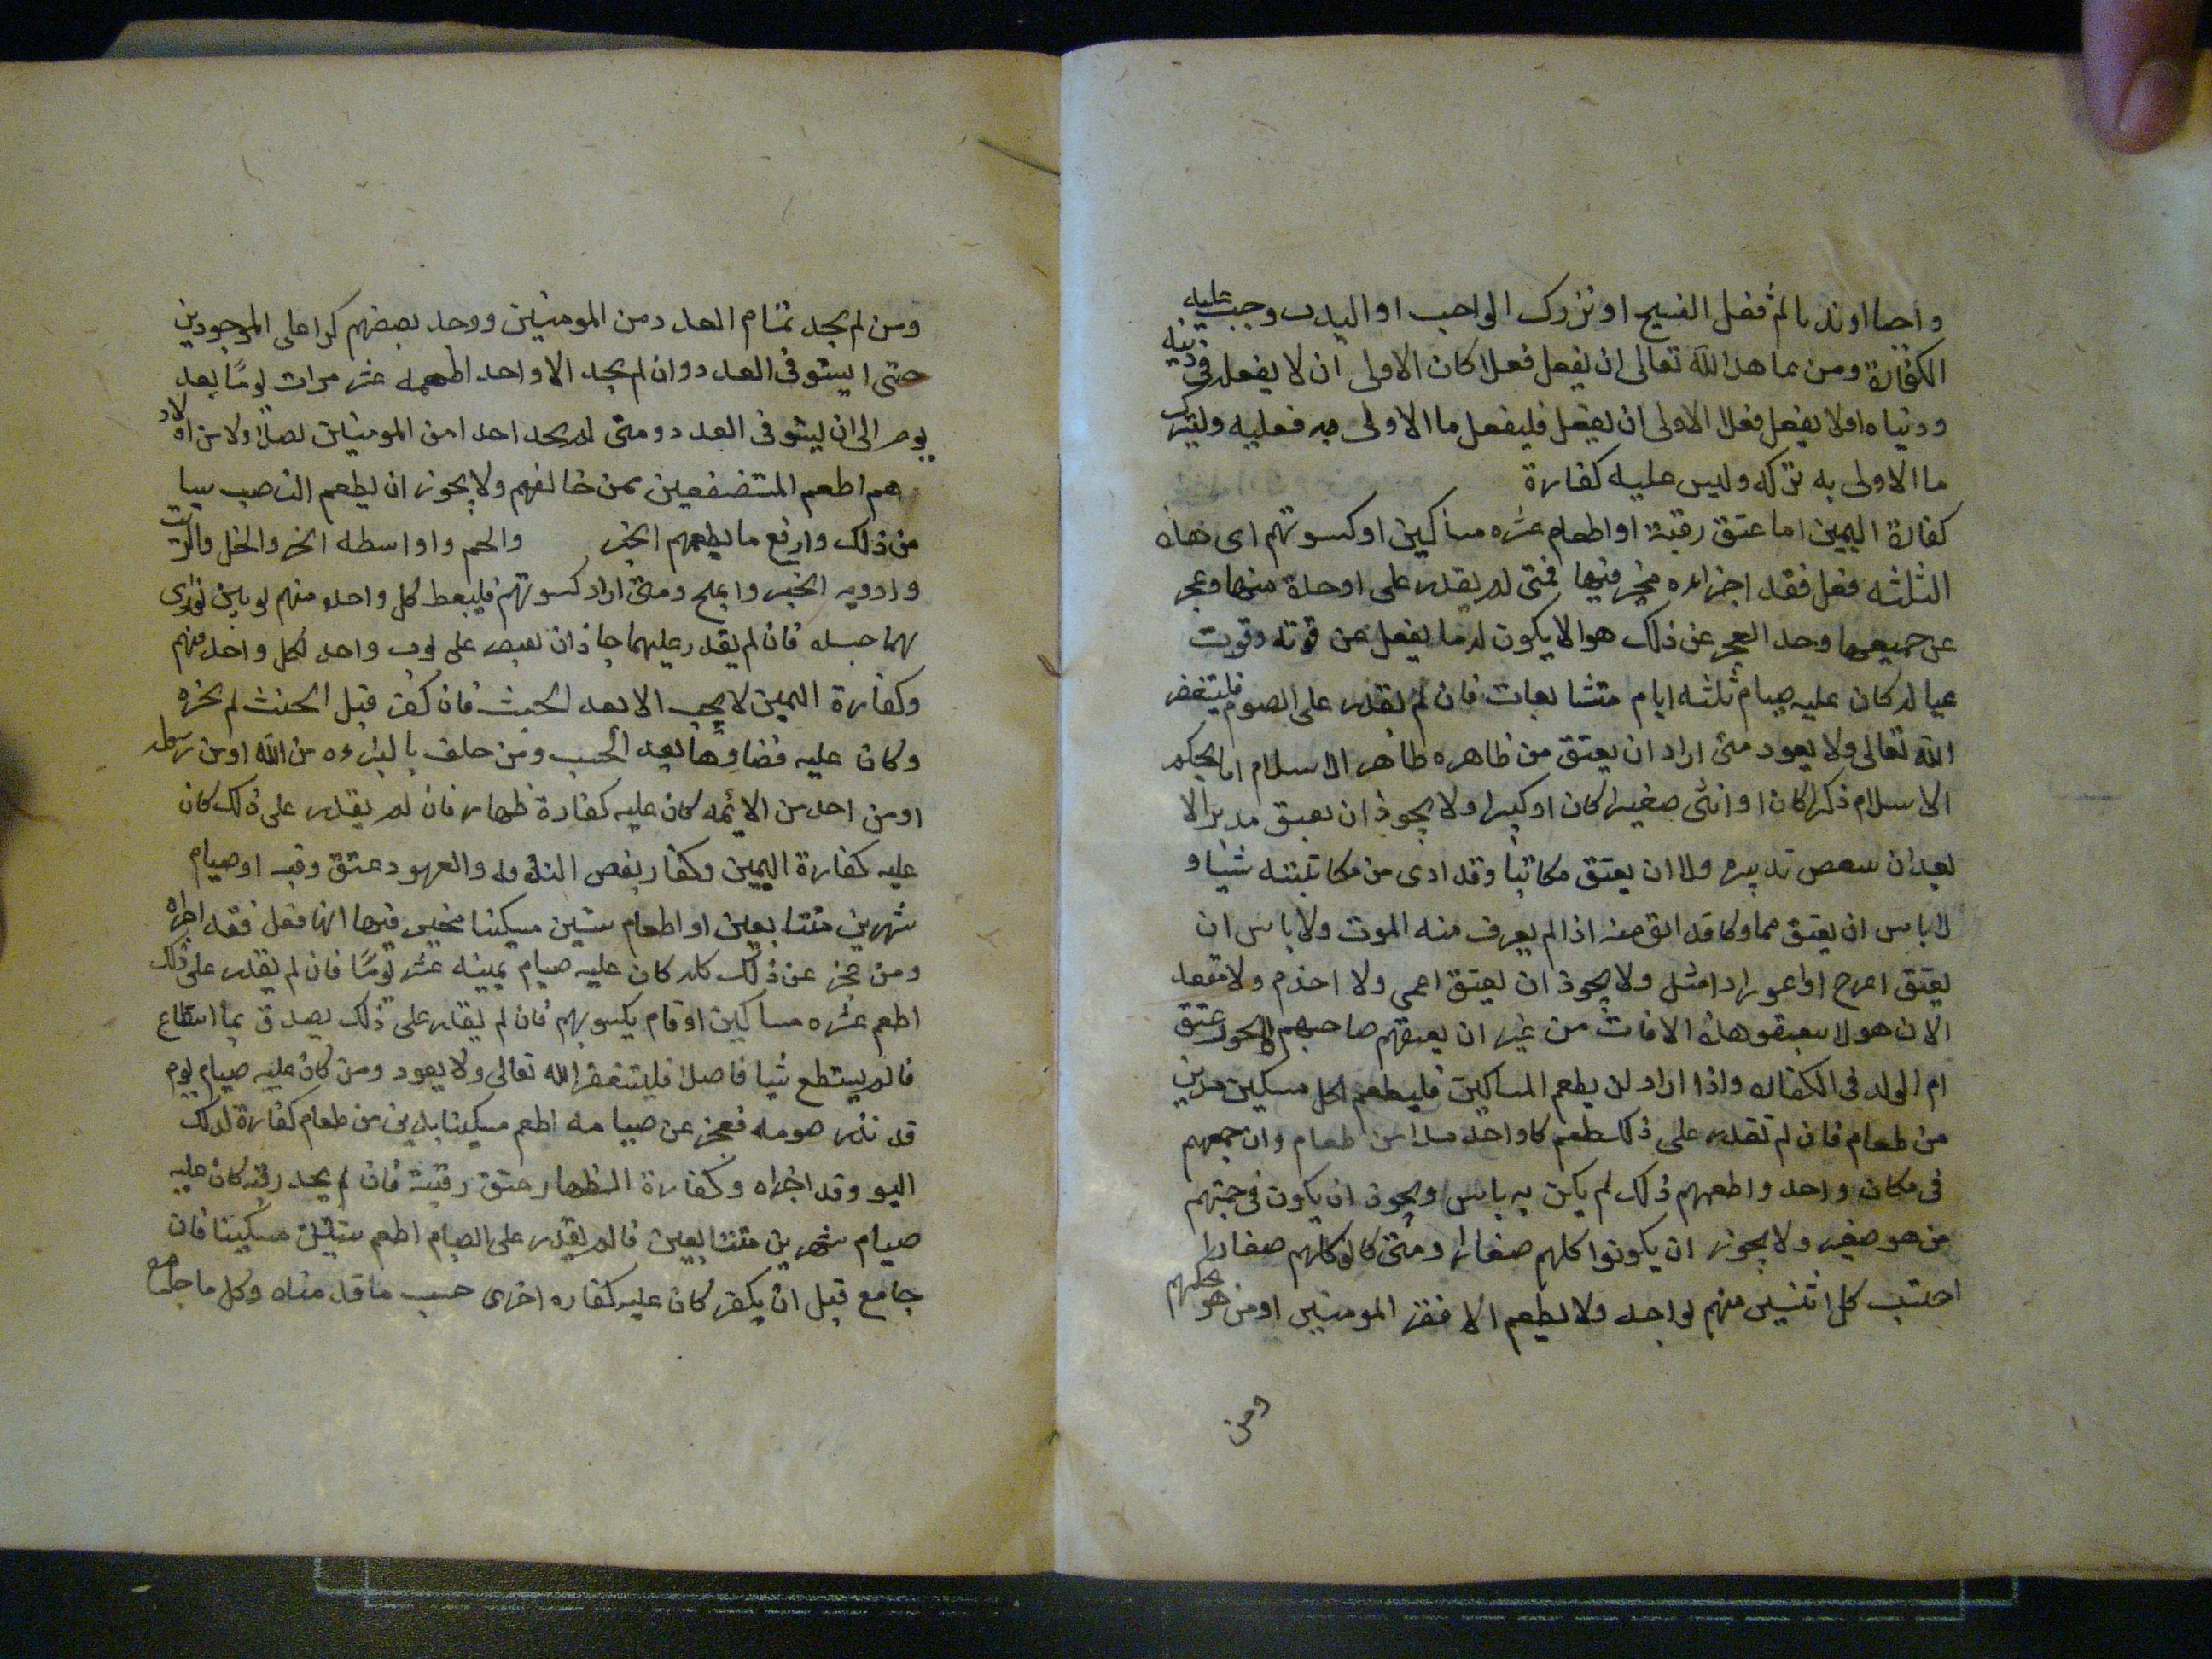 واجبا او ندبا ثم فعل القبيح او ترك الواجب او الندب وجبت عليه
الكفارة ومن عاهد الله تعالى ان يفعل فعلا كان الاولى ان لا يفعله فى دينه
ودنياه او لا يفعل فعلا الاولى ان يفعل فليفعل ما الاولى به فعليه وليترك
ما الاولى به تركه وليس عليه كفارة
كفارة اليمين اما عتق رقبة او اطعام عشره مساكين او كسوتهم اى هذه
الثلثه فعل فقد اجزاءه مخير فيها فمتى لم يقدر على اوحدة منها وعجز
عن جميعها وحد العجز عن ذلك هو الا يكون له ما يفعل عن قوته وقوت
عياله كان عليه صيام ثلثه ايام متتابعات فان لم يقدر على الصوم فليتغفر
الله تعالى ولا يعود متى اراد ان يعتق من ظاهره ظاهر الاسلام او بحكم
الاسلام ذكرا كان او انثى صغيرا كان او كبيرا ولا يجوز ان يعتق مدبرا الا
بعد ان ينقص تدبيره ولا ان يعتق مكاتبا وقد ادى من مكاتبته شيئا و
لا باس ان يعتق مملوكا قد ابق منه اذا لم يعرف منه الموت ولا باس ان
يعتق اعرج او اعور او اشل ولا يجوز ان يعتق اعمى ولا اجذم ولا مقعد
الان هولا ينعتقو هذه الافات من غير ان يعتقهم صاحبهم ويجوز عتق
ام الولد فى الكفاره واذا اراد ان يطعم المساكين فليطعم لكل مسكين مدين
من طعام فان لم يقدر على ذلك يطعم كل واحد مدا من طعام وان جمعهم
فى مكان واحد واطعمهم ذلك لم يكن به باس ويجوز ان يكون فى جمتهم
من هو صغير ولا يجوز ان يكونوا كلهم صغارا ومتى كانو كلهم صغارا
احتسب كل اثنين منهم بواحد ولا يطعم الا فقرا المومنين او من هو بحكمهم
ومن
ومن لم يجد تمام العدد من المومنين ووجد بعضهم كرا على الموجودين
حتى ايستوفى العدد وان لم يجد الا واحد اطعمه عشر مرات يوما بعد
يوم الى ان يستوفى العدد ومتى لم يجد احدا من المومنين اصلا ولا من اولاد
هم اطعم المستضعفين ممن خالفهم ولا يجوز ان يطعم الناصب شيا
من ذلك وارفع ما يطعمهم الخبز والحم واواسطه الخبز والخل والزيت
وادويه الخبز واملح ومتى اراد كسوتهم فليعط كل واحد منهم ثوبين يوارى
بهما جسده فان لم يقدر عليهما جاز ان يقتصر على ثوب واحد لكل واحد منهم
وكفارة اليمين لا يجب الا بعد الحنث فان كفر قبل الحنث لم يجزه
وكان عليه قضاوها بعد الحنث ومن حلف بالبراءه من الله او من رسوله
او من احد من الائمه كان عليه كفارة ظهار فان لم يقدر على ذلك كان
عليه كفارة اليمين وكفار نقص النذوره والعهود عتق رقبه او صيام
شهرين متتابعين او اطعام ستين مسكينا مخير فيها ايها فعل فقد اجزاه
ومن عجز عن ذلك كله كان عليه صيام ثمينه عشر يوما فان لم يقدر على ذلك
اطعم عشره مساكين او قام بكسوتهم فان لم يقدر على ذلك يصدق بما استطاع
فالم يستطع شيا فاصلا فليتغفر الله تعالى ولا يعود ومن كان عليه صيام يوم
قد نذر صومه فعجز عن صيامه اطعم مسكينا مدين من طعام كفارة لذلك
اليو وقد اجزاه وكفارة الظهار عتق رقبة فان لم يجد رقبه كان عليه
صيام شهرين متتابعين فالم يقدر على الصيام اطعم ستين مسكينا فان
جامع قبل ان يكفر كان عليه كفاره اخرى حسب ما قدمناه وكل ما جامع